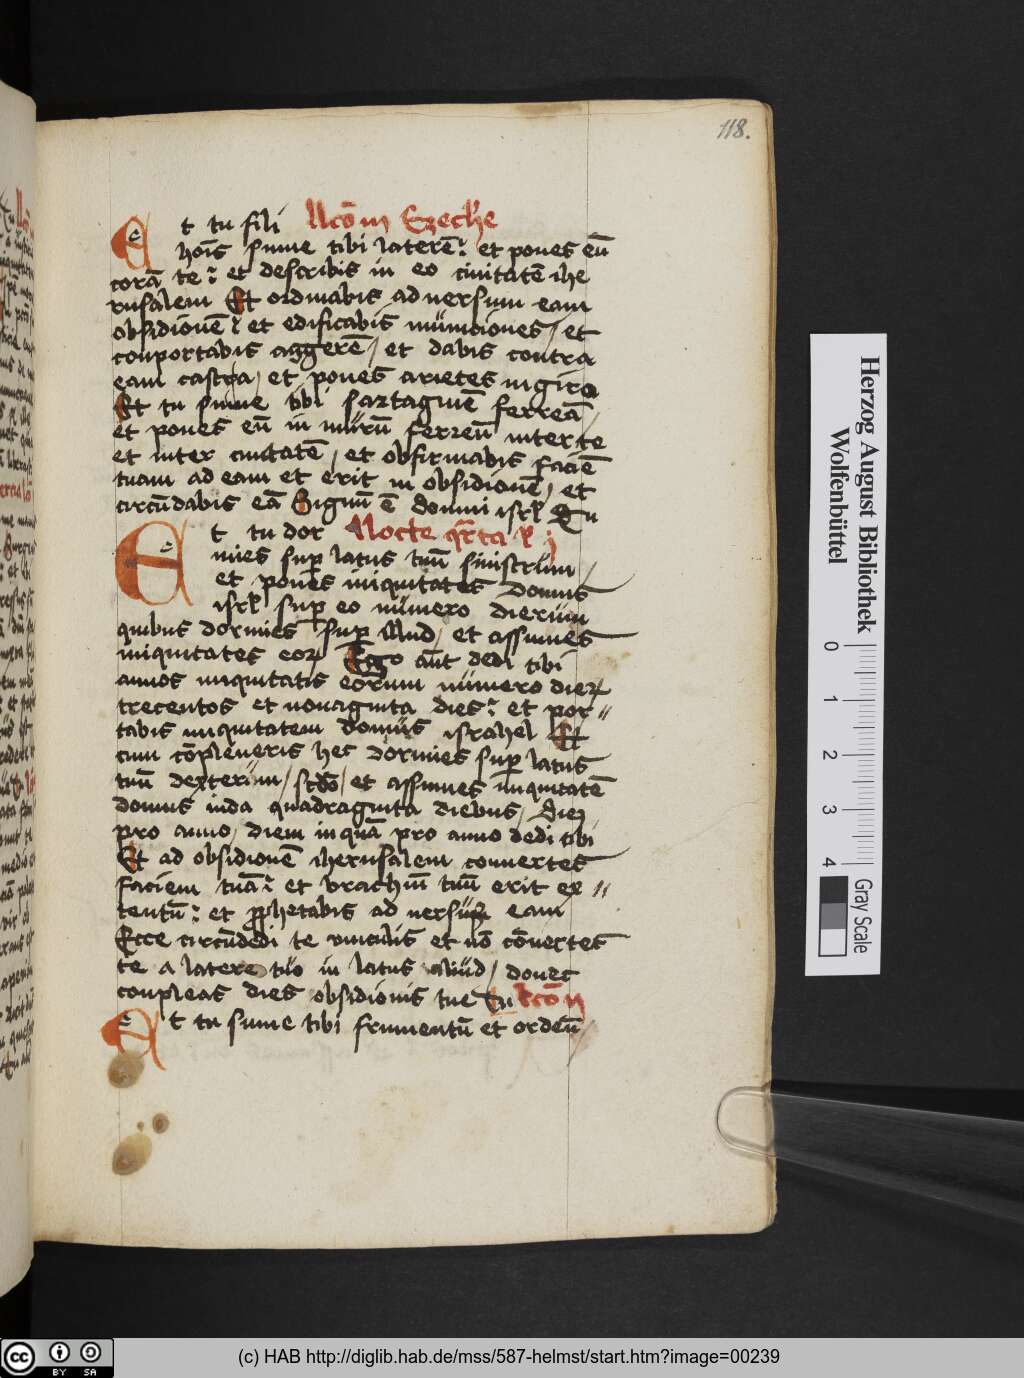 118.
Et tu fili llcō m Ezech'e
hoīs sume tibi laterē et pones eū
corā te et describis in eo ciuitatē ihe
rusalem Et ordinabis aduersum eam
obsidionē et edificabis municiones et
conportabis aggerē et dabis contra
eam castra et pones arietes in giro
Et tu sume tibi sartaginē ferreā
et pones eū in murū ferreū inter te
et inter ciuitatē et obfirmabis faciē
tuam ad eam et erit in obsidionē et
circūdabis eā Signū ē domui isrl Tu
Et tu dor Nocte qrta
mies sup latus tuū sinistrum
et pones iniquitates domus
isrl sup eo numero dierum
quibus dormies sup illud et assumes
iniquitates eor Ego aūt dedi tibi
annos iniquitatis eorum numero dier
trecentos et nonaginta dies et por
tabis iniquitatem domus israhel Et
cum cōpleueris hec dormies sup latus
tuū dexterum scdo et assumes iniquitatē
domus iuda quadraginta diebus Diē
pro anno diem inquā pro anno dedi tibi
Et ad obsidionē iherusalem conuertes
faciem tuā et brachiū tuū erit ex
tentū et prophetabis ad uersum eam
Ecce circūdedi te vinculis et nō cōuertes
te a latere tuo in latus aliud donec
conpleas dies obsidionis tue Tu lcō m
Et tu sume tibi frumentū et ordeū
Herzog August Bibliothek
Wolfenbüttel
0 1 2 3 4
Gray Scale
cc BY SA
(c) HAB http://diglib.hab.de/mss/587-helmst/start.htm?image=00239